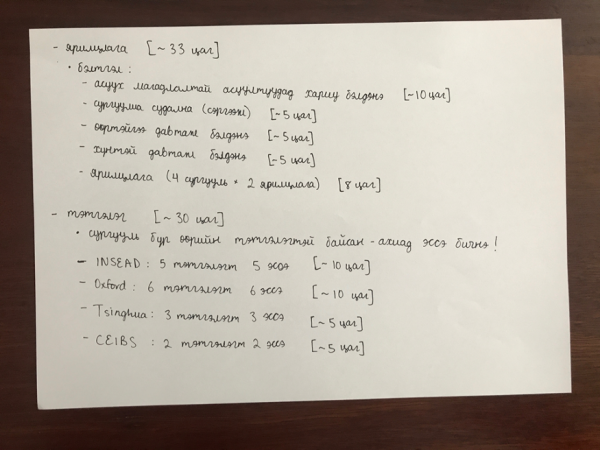 - ярилцлага [~33 цаг]
• бэлтгэл:
- асуух магадлалтай асуултуудад хариу бэлдэнэ [~10 цаг]
- сургуулиа судална (сэргээж) [~5 цаг]
- өөртэйгээ давтаж бэлдэнэ [~5 цаг]
- хүнтэй давтаж бэлдэнэ [~5 цаг]
- ярилцлага (4 сургууль * 2 ярилцлага) [8 цаг]
- тэтгэлэг [~30 цаг]
• сургууль бүр өөрийн тэтгэлэгтэй байсан - ахиад эссэ бичнэ!
- INSEAD: 5 тэтгэлэгт 5 эссэ [~10 цаг]
- Oxford: 6 тэтгэлэгт 6 эссэ [~10 цаг]
- Tsinghua: 3 тэтгэлэгт 3 эссэ [~5 цаг]
- CEIBS : 2 тэтгэлэгт 2 эссэ [~5 цаг]